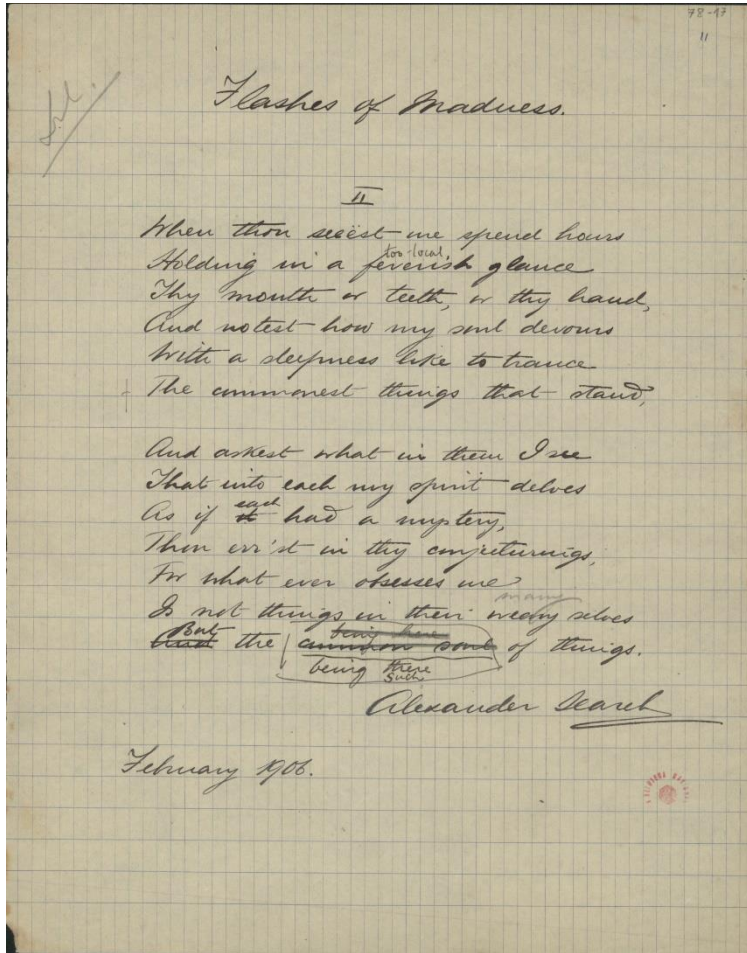 78-47
11
Flashes of Madness.
II
When thou seeëst me spend hours
too local,
Holding in a feverish glance
Thy mouth or teeth, or thy hand,
And notest how my soul devours
With a sleepness like to trance
The commonest things that stand,
And askest what in them I see
That into each my spirit delves
each
As if it had a mystery,
Thou err'st in thy conjecturings,
For what ever obsesses me
many
Is not things in their weary selves
But being here
And the common soul of things.
being there
such
Alexander Search
February 1906.